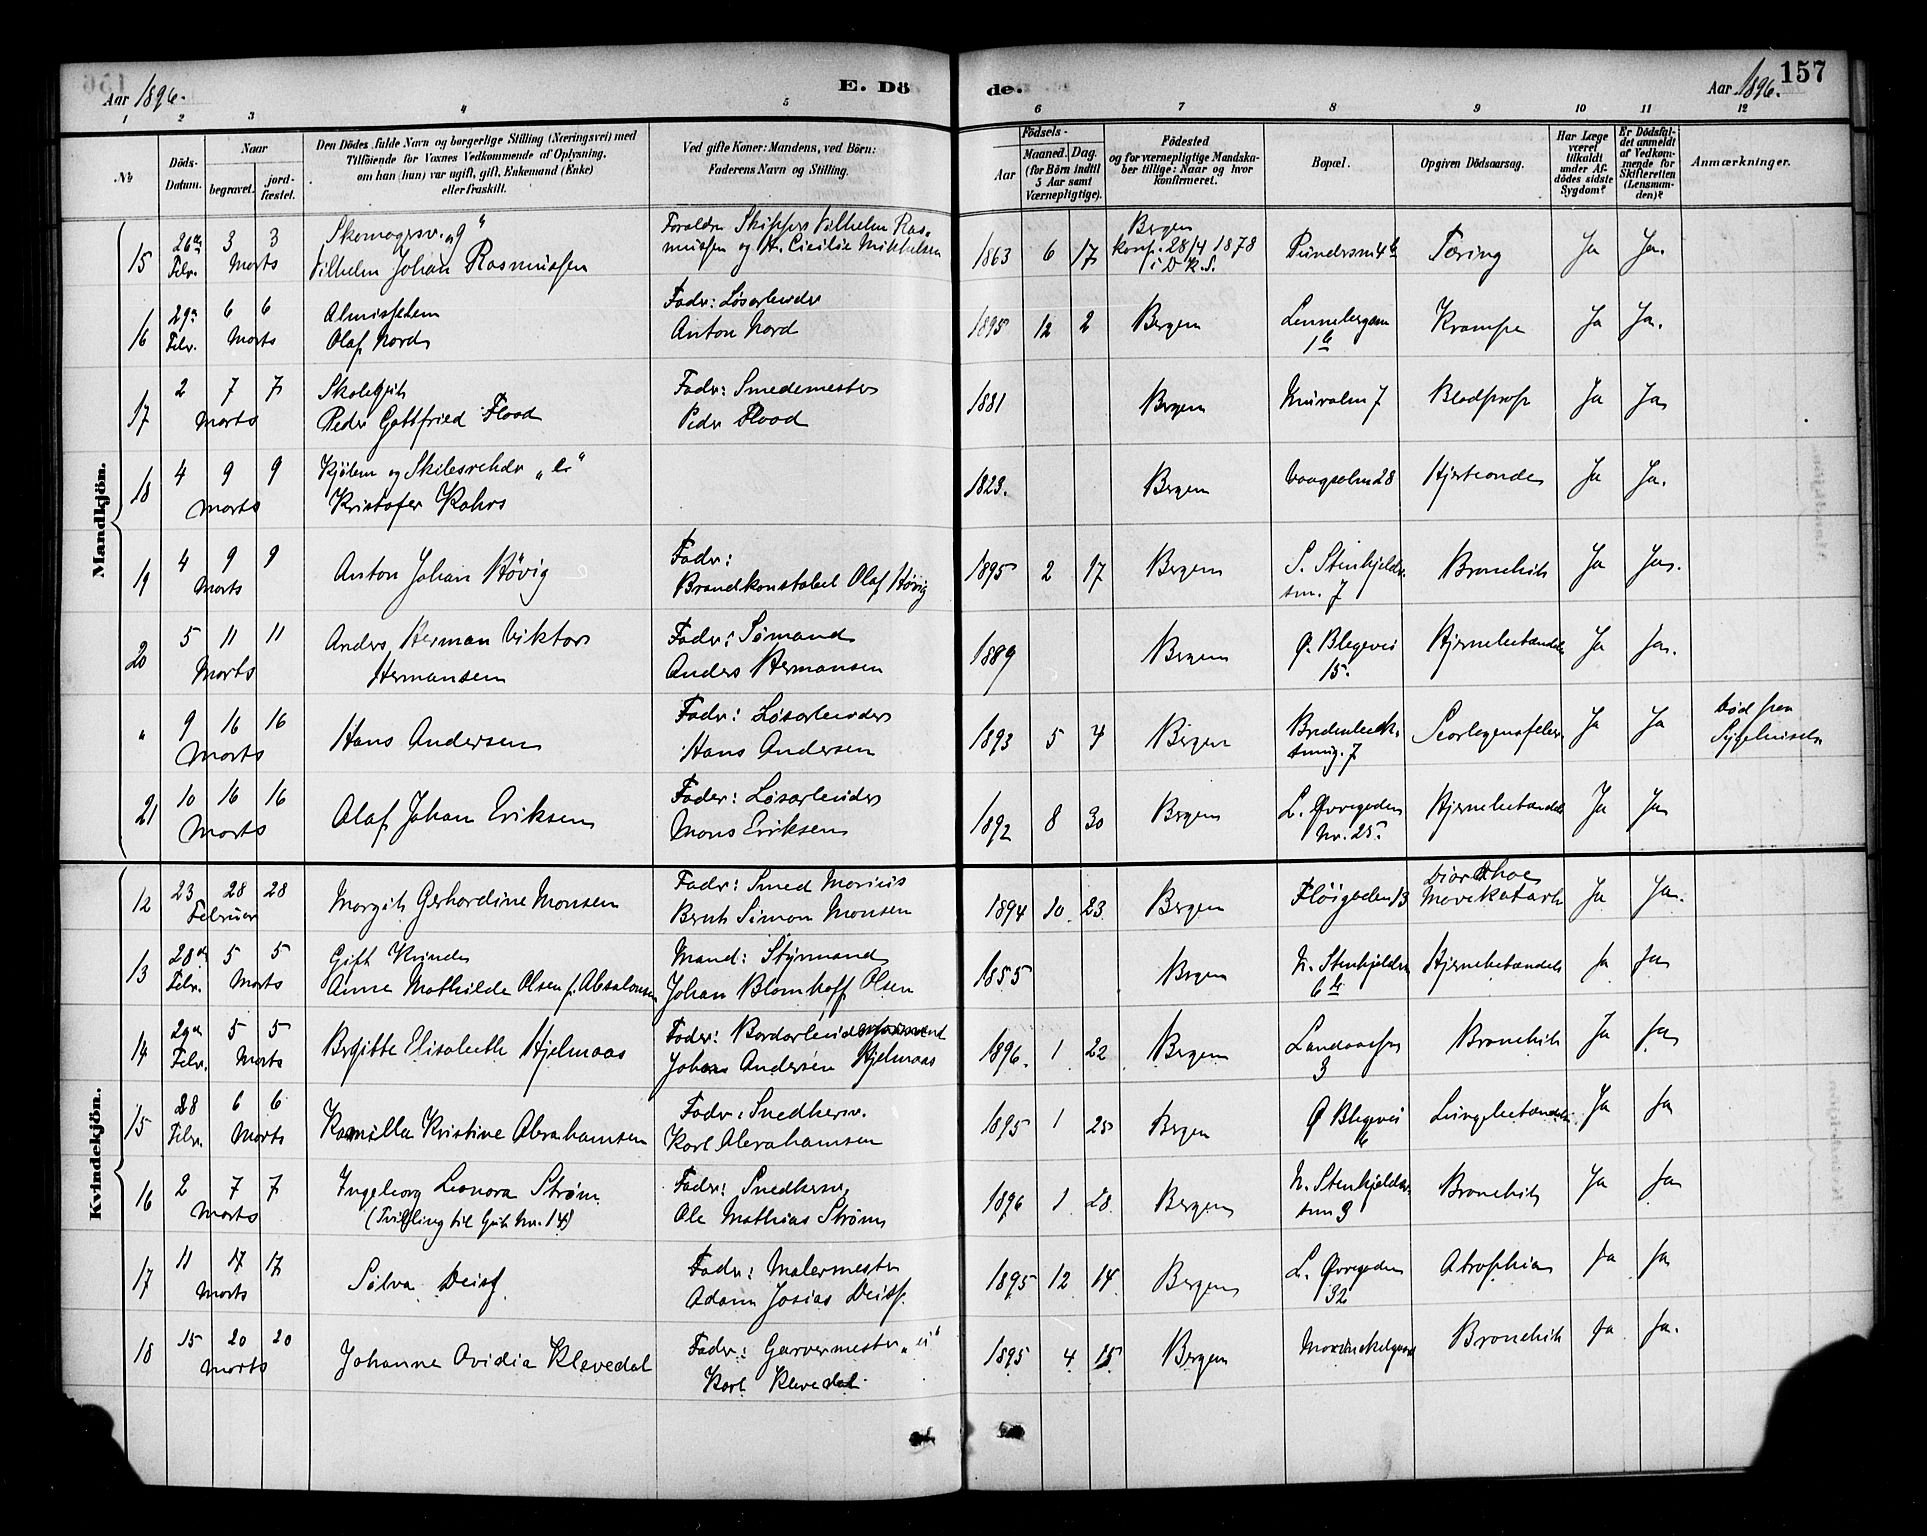 Aar 1896.
E. Dö
de.
Aar 1896.
157
1 2 3 4 5 6 7 8 9 10 11 12
№
Döds-
Datum.
Naar
begravet.
jord-
fæstet.
Den Dödes fulde Navn og borgerlige Stilling (Næringsvei) med
Tilföiende for Voxnes Vedkommende af Oplysning,
om han (hun) var ugift, gift, Enkemand (Enke)
eller fraskilt.
Ved gifte Koner: Mandens, ved Börn:
Faderens Navn og Stilling.
Födsels-
Aar
Maaned. Dag.
(for Börn indtil
5 Aar samt
Værnepligtige).
Födested
og for værnepligtige Mandska-
ber tillige: Naar og hvor
konfirmeret.
Bopæl.
Opgiven Dödsaarsag.
Har Læge
været
tilkaldt
under Af-
dödes sidste
Sygdom?
Er Dödsfal-
det anmeldt
af Vedkom-
mende for
Skifteretten
(Lensman-
den)?
Anmærkninger.
Mandkjön.
15 26de Febr. 3 3 Marts
Skomagersv. "ug"
Vilhelm Johan Rasmussen
Forældre Skipper Vilhelm Ras-
mussen og H. Cicilie Mikkelsen
1863 6 17
Bergen
konf. 28/4 1878
i D. K. S.
Tæring Ja Ja.
16 29de Febr. 6 6 Marts
Olaf Nord
Fader: Løsarbeider
Anton Nord
1895 12 2 Bergen
1b
Krampe Ja Ja.
17 2 7 7 Marts
Skolegut
Peder Gottfried Flood
Fader: Smedemester
Peder Flood
1881 Bergen Muralm 7 Ja Ja
18 4 9 9 Marts
Kristofer Kahrs
1823. Bergen Vaagsalm 28 Hjerteonde Ja Ja.
19 4 9 9 Marts
Anton Johan Høvig
Fader:
Brandkonstabel Olaf Høvig
1895 2 17 Bergen
S. Stenkjelder-
sm. 7
Bronchit Ja Ja.
20 5 11 11 Marts
Anders Herman Viktor
Hermansen
Fader: Sømand
Anders Hermansen
1889 Bergen
Ø. Blegevei
15.
Hjernebetændelse Ja Ja.
" 9 16 16 Marts
Hans Andersen
Fader: Løsarbeider
Hans Andersen
1893 5 4 Bergen
smug. 7
Scarlagensfeber Ja Ja
Død paa
Sygehuset
21 10 16 16 Marts
Olaf Johan Eriksen
Fader: Løsarbeider
Mons Eriksen
1892 8 30 Bergen
L. Øvregaden
Nr. 25.
Hjernebetændelse Ja Ja
Kvindekjön.
12 23 28 28 Februar
Margit Gerhardine Monsen
Fader: Smed Marius
Bernt Simon Monsen
1894 10. 23. Bergen Fløigaden 13
Diarrhoe
Mavekatarh
Ja Ja.
13 28de Febr. 5 5 Marts
Gift Kvinde
Anna Mathilde Olsen f. Absalonsen
Mand: Styrmand
Johan Blomhoff Olsen
1855 Bergen
N. Stenkjelder
6b
Hjernebetændelse Ja Ja
14 29de Febr. 5 5 Marts
Birgitte Elisabeth Hjelmaas
Fader: Bordarbeider
Johan Andersen Hjelmaas
1896. 1 22 Bergen
3
Bronchit Ja Ja
15 28 Febr. 6 6 Marts
Kamilla Kristine Abrahamsen
Fader: Snedkersv.
Karl Abrahamsen
1895 1 25 Bergen
Ø Blegevei
6
Lungebetændelse Ja Ja
16 2 7 7 Marts
Ingeborg Leonora Strøm
(Tvilling til Gut Nr. 14)
Fader: Snedkersv.
Ole Mathias Strøm
1896 1 28. Bergen
N. Stenkjelder-
sm 9
Bronchit Ja Ja
17 11 17 17 Marts
Solva Deisz.
Fader: Malermester
Adam Josias Deisz.
1895 12 14. Bergen
L. Øvregaden
32
Atrophia Ja Ja
18 15 20 20 Marts
Johanne Ovidia Klevedal
Fader: Garvermester "ei"
Karl Klevedal
1895 4 15 Bergen Bronchit Ja Ja.